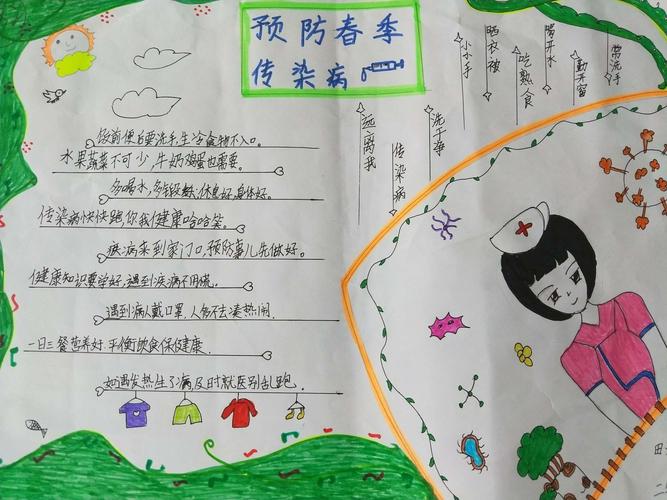 预防春季
传染病
常洗手
勤开窗
喝开水
吃熟食
晒衣被
小小手
洗干净
传染病
远离我
饭前便后要洗手,生冷食物不入口。
水果蔬菜不可少,牛奶鸡蛋也需要。
多喝水,多锻炼,休息好,身体好。
传染病快快跑,你我健康哈哈笑。
疾病来到家门口,预防事儿先做好。
健康知识要学好,遇到疾病不用慌。
遇到病人戴口罩,人多不去凑热闹.
一日三餐营养好,平衡饮食保健康.
如遇发热生了病,及时就医别乱跑.